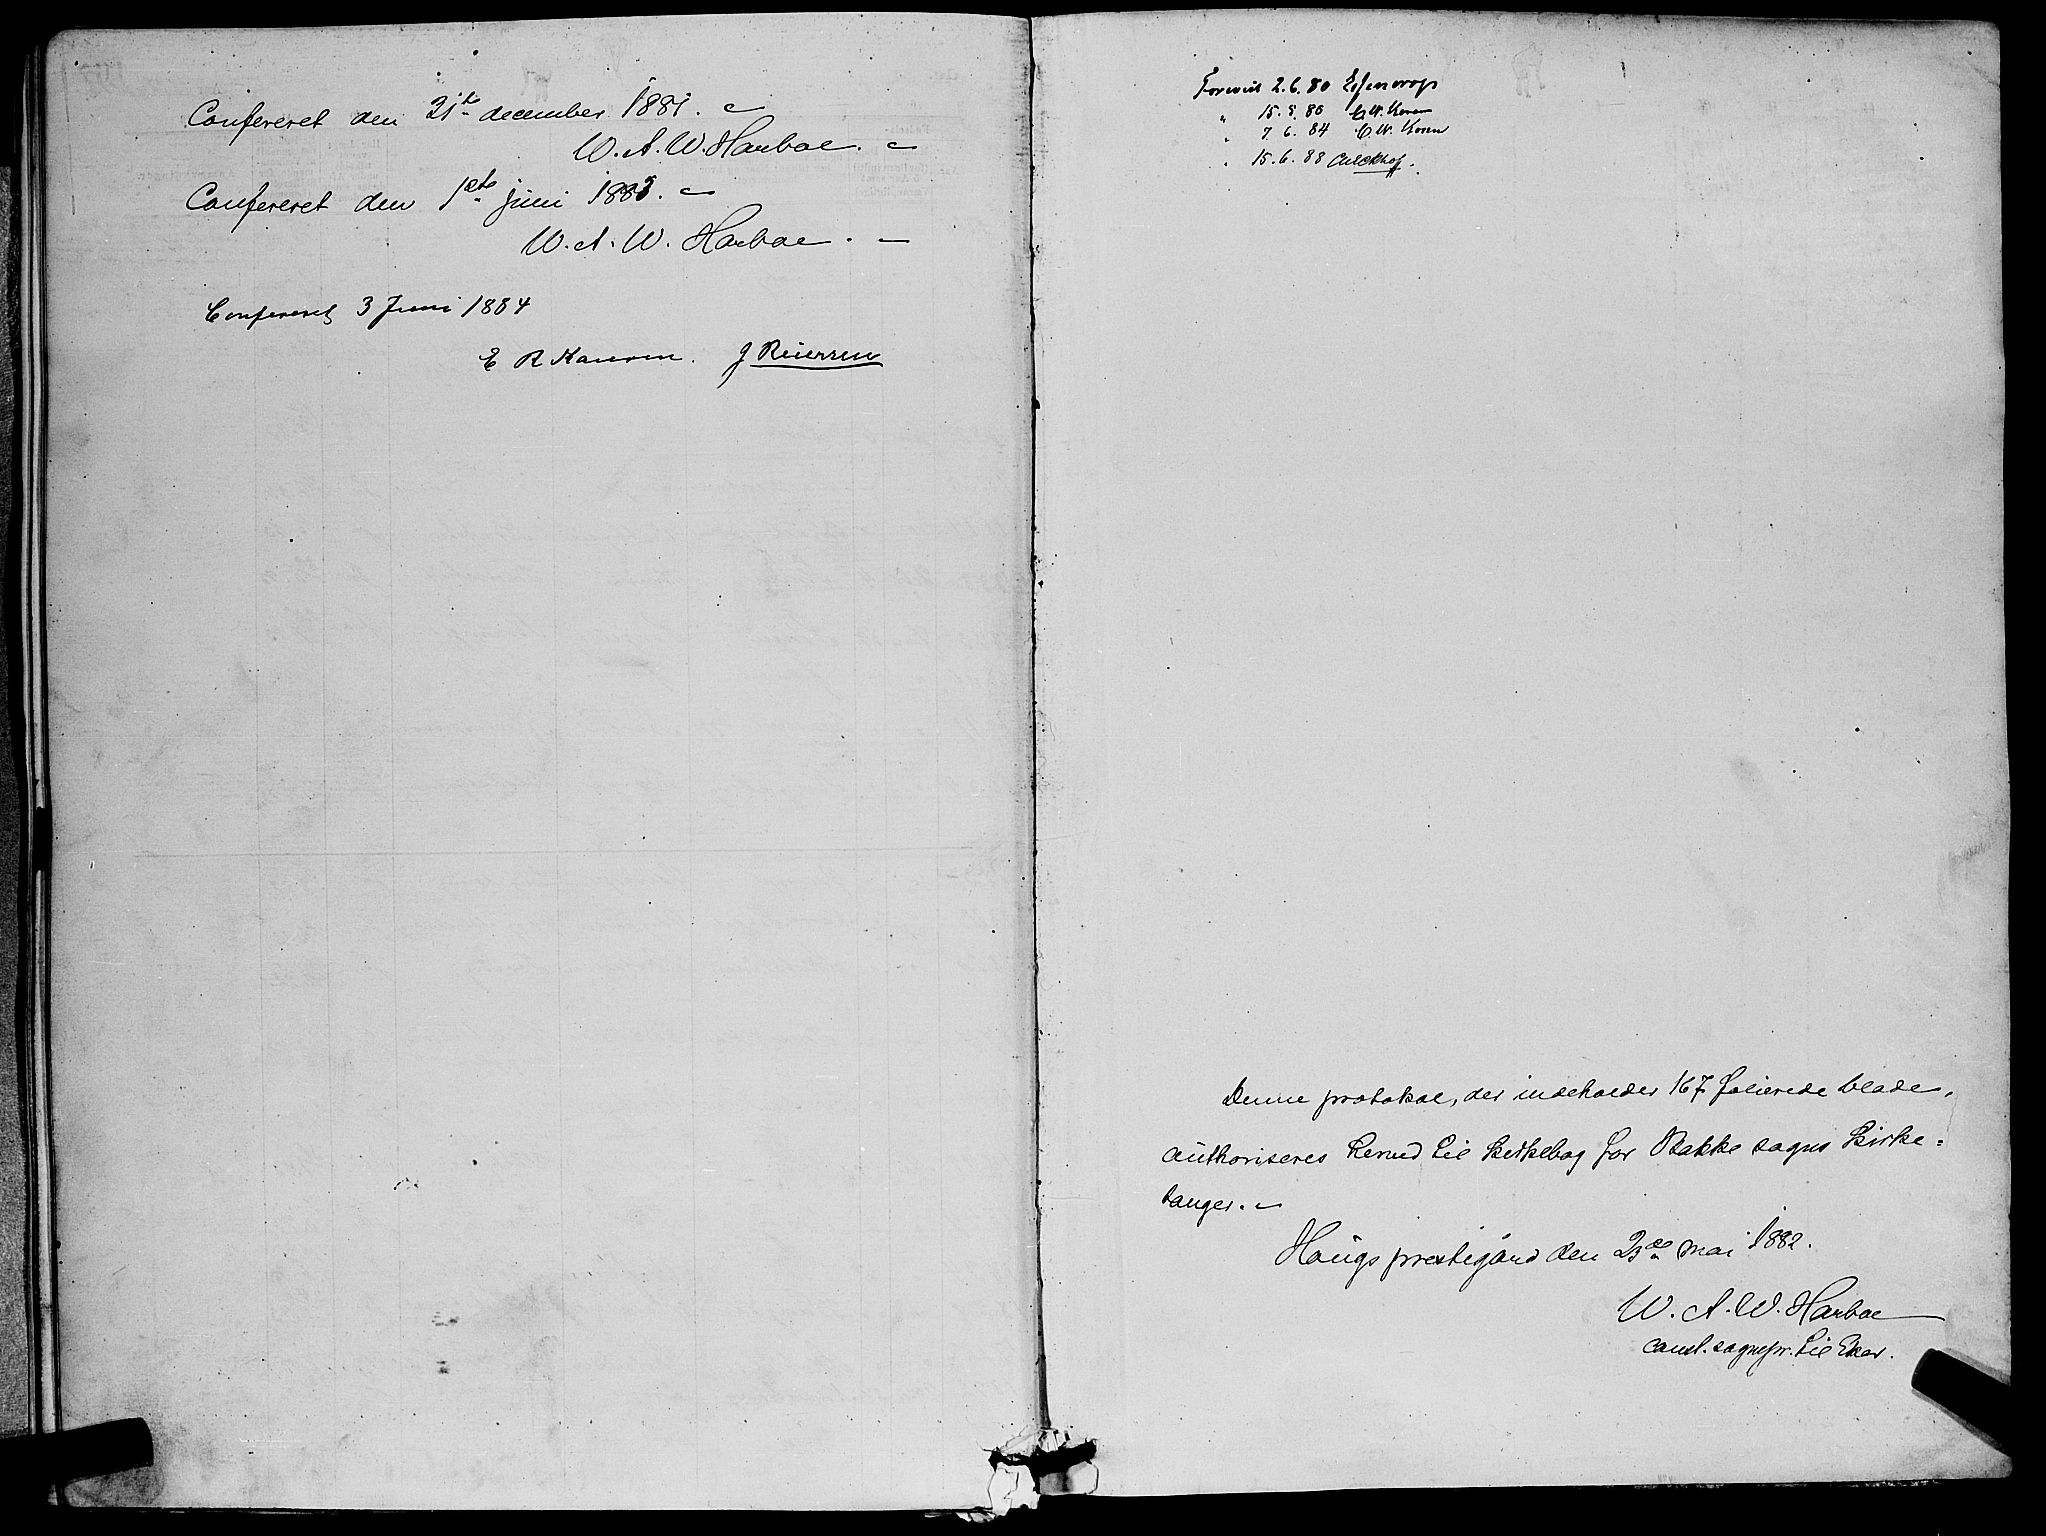 Confereret den 21de december 1881.
W. A. W. Harboe.
Confereret den 1ste juni 1883.
W. A. W. Harboe.
Confereret 3 Juni 1884
E R Hansen. J Reiersen
Forevist 2.6.80 Essendrop
" 15. 8. 80 C. W. Koren
" 7. 6. 84 C. W. Koren
" 15. 6. 88
Denne protokol, der indeholder 167 folierede blade,
authoriseres herved til kirkebog for Bakke sogns kirke=
sanger.
Haugs prestegård den 23de mai 1882.
W. A. W. Harboe
const. sognepr. til Eker.